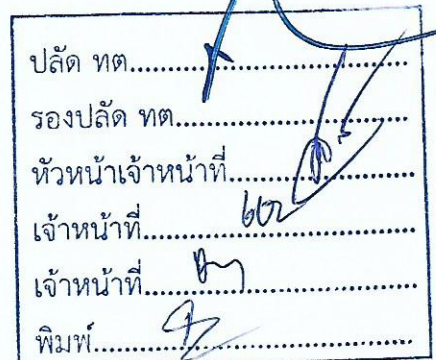 ปลัด ทต....................................
รองปลัด ทต..............................
หัวหน้าเจ้าหน้าที่........................
เจ้าหน้าที่..................................
เจ้าหน้าที่..................................
พิมพ์..........................................